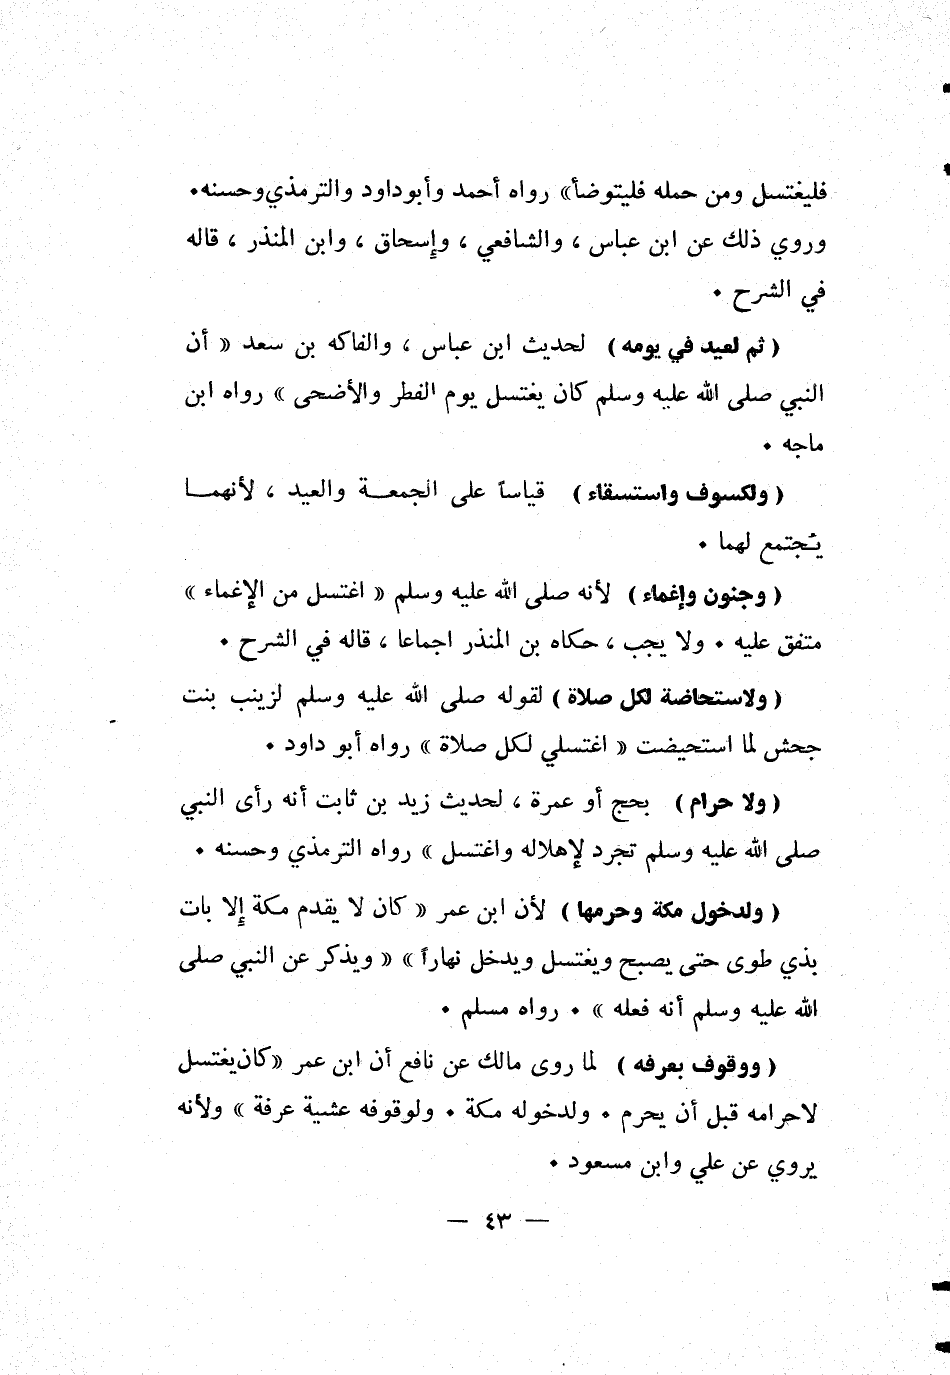 فليغتسل ومن حمله فليتوضأ» رواه أحمد وأبوداود والترمذي وحسنه.
وروي ذلك عن ابن عباس ، والشافعي ، وإسحاق ، وابن المنذر ، قاله
في الشرح .
( ثم لعيد في يومه ) لحديث ابن عباس ، والفاكه بن سعد « أن
النبي صلى الله عليه وسلم كان يغتسل يوم الفطر والأضحى » رواه ابن
ماجه .
( ولكسوف واستسقاء ) قياساً على الجمعــة والعيد ، لأنهمــا
يُجتمع لهما .
( وجنون وإغماء ) لأنه صلى الله عليه وسلم « اغتسل من الإغماء »
متفق عليه . ولا يجب ، حكاه بن المنذر اجماعا ، قاله في الشرح .
( ولاستحاضة لكل صلاة ) لقوله صلى الله عليه وسلم لزينب بنت
جحش لما استحيضت « اغتسلي لكل صلاة » رواه أبو داود .
( ولا حرام ) بحج أو عمرة ، لحديث زيد بن ثابت أنه رأى النبي
صلى الله عليه وسلم تجرد لإهلاله واغتسل » رواه الترمذي وحسنه .
( ولدخول مكة وحرمها ) لأن ابن عمر « كان لا يقدم مكة إلا بات
بذي طوى حتى يصبح ويغتسل ويدخل نهاراً » « ويذكر عن النبي صلى
الله عليه وسلم أنه فعله » . رواه مسلم .
( ووقوف بعرفه ) لما روى مالك عن نافع أن ابن عمر «كان يغتسل
لاحرامه قبل أن يحرم . ولدخوله مكة . ولوقوفه عشية عرفة » ولأنه
يروي عن علي وابن مسعود .
— ٤٣ —